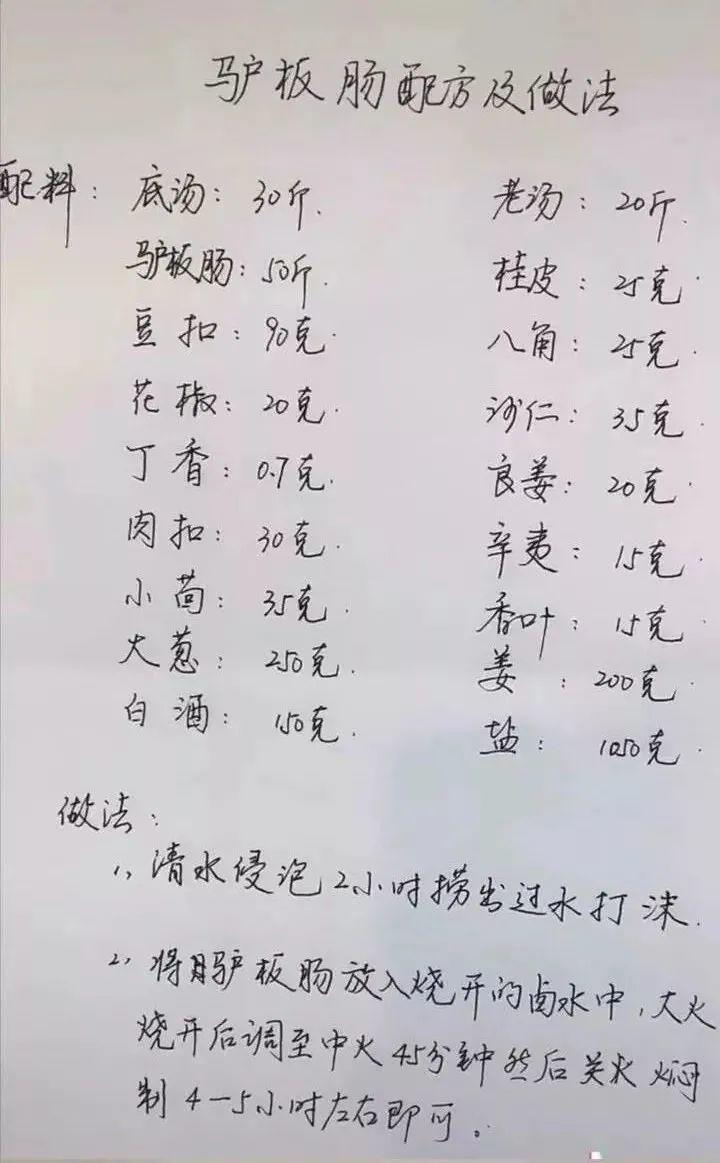 驴板肠配方及做法
配料: 底汤: 30斤. 老汤: 20斤.
驴板肠: 50斤. 桂皮: 25克.
豆扣: 90克. 八角: 25克.
花椒: 20克. 沙仁: 35克.
丁香: 0.7克. 良姜: 20克.
肉扣: 30克. 辛夷: 15克.
小茴: 35克. 香叶: 15克.
大葱: 250克. 姜: 200克.
白酒: 150克. 盐: 1050克.
做法:
1、清水侵泡2小时捞出过水打沫.
2、将驴板肠放入烧开的卤水中,大火
烧开后调至中火45分钟然后关火焖
制4-5小时左右即可。